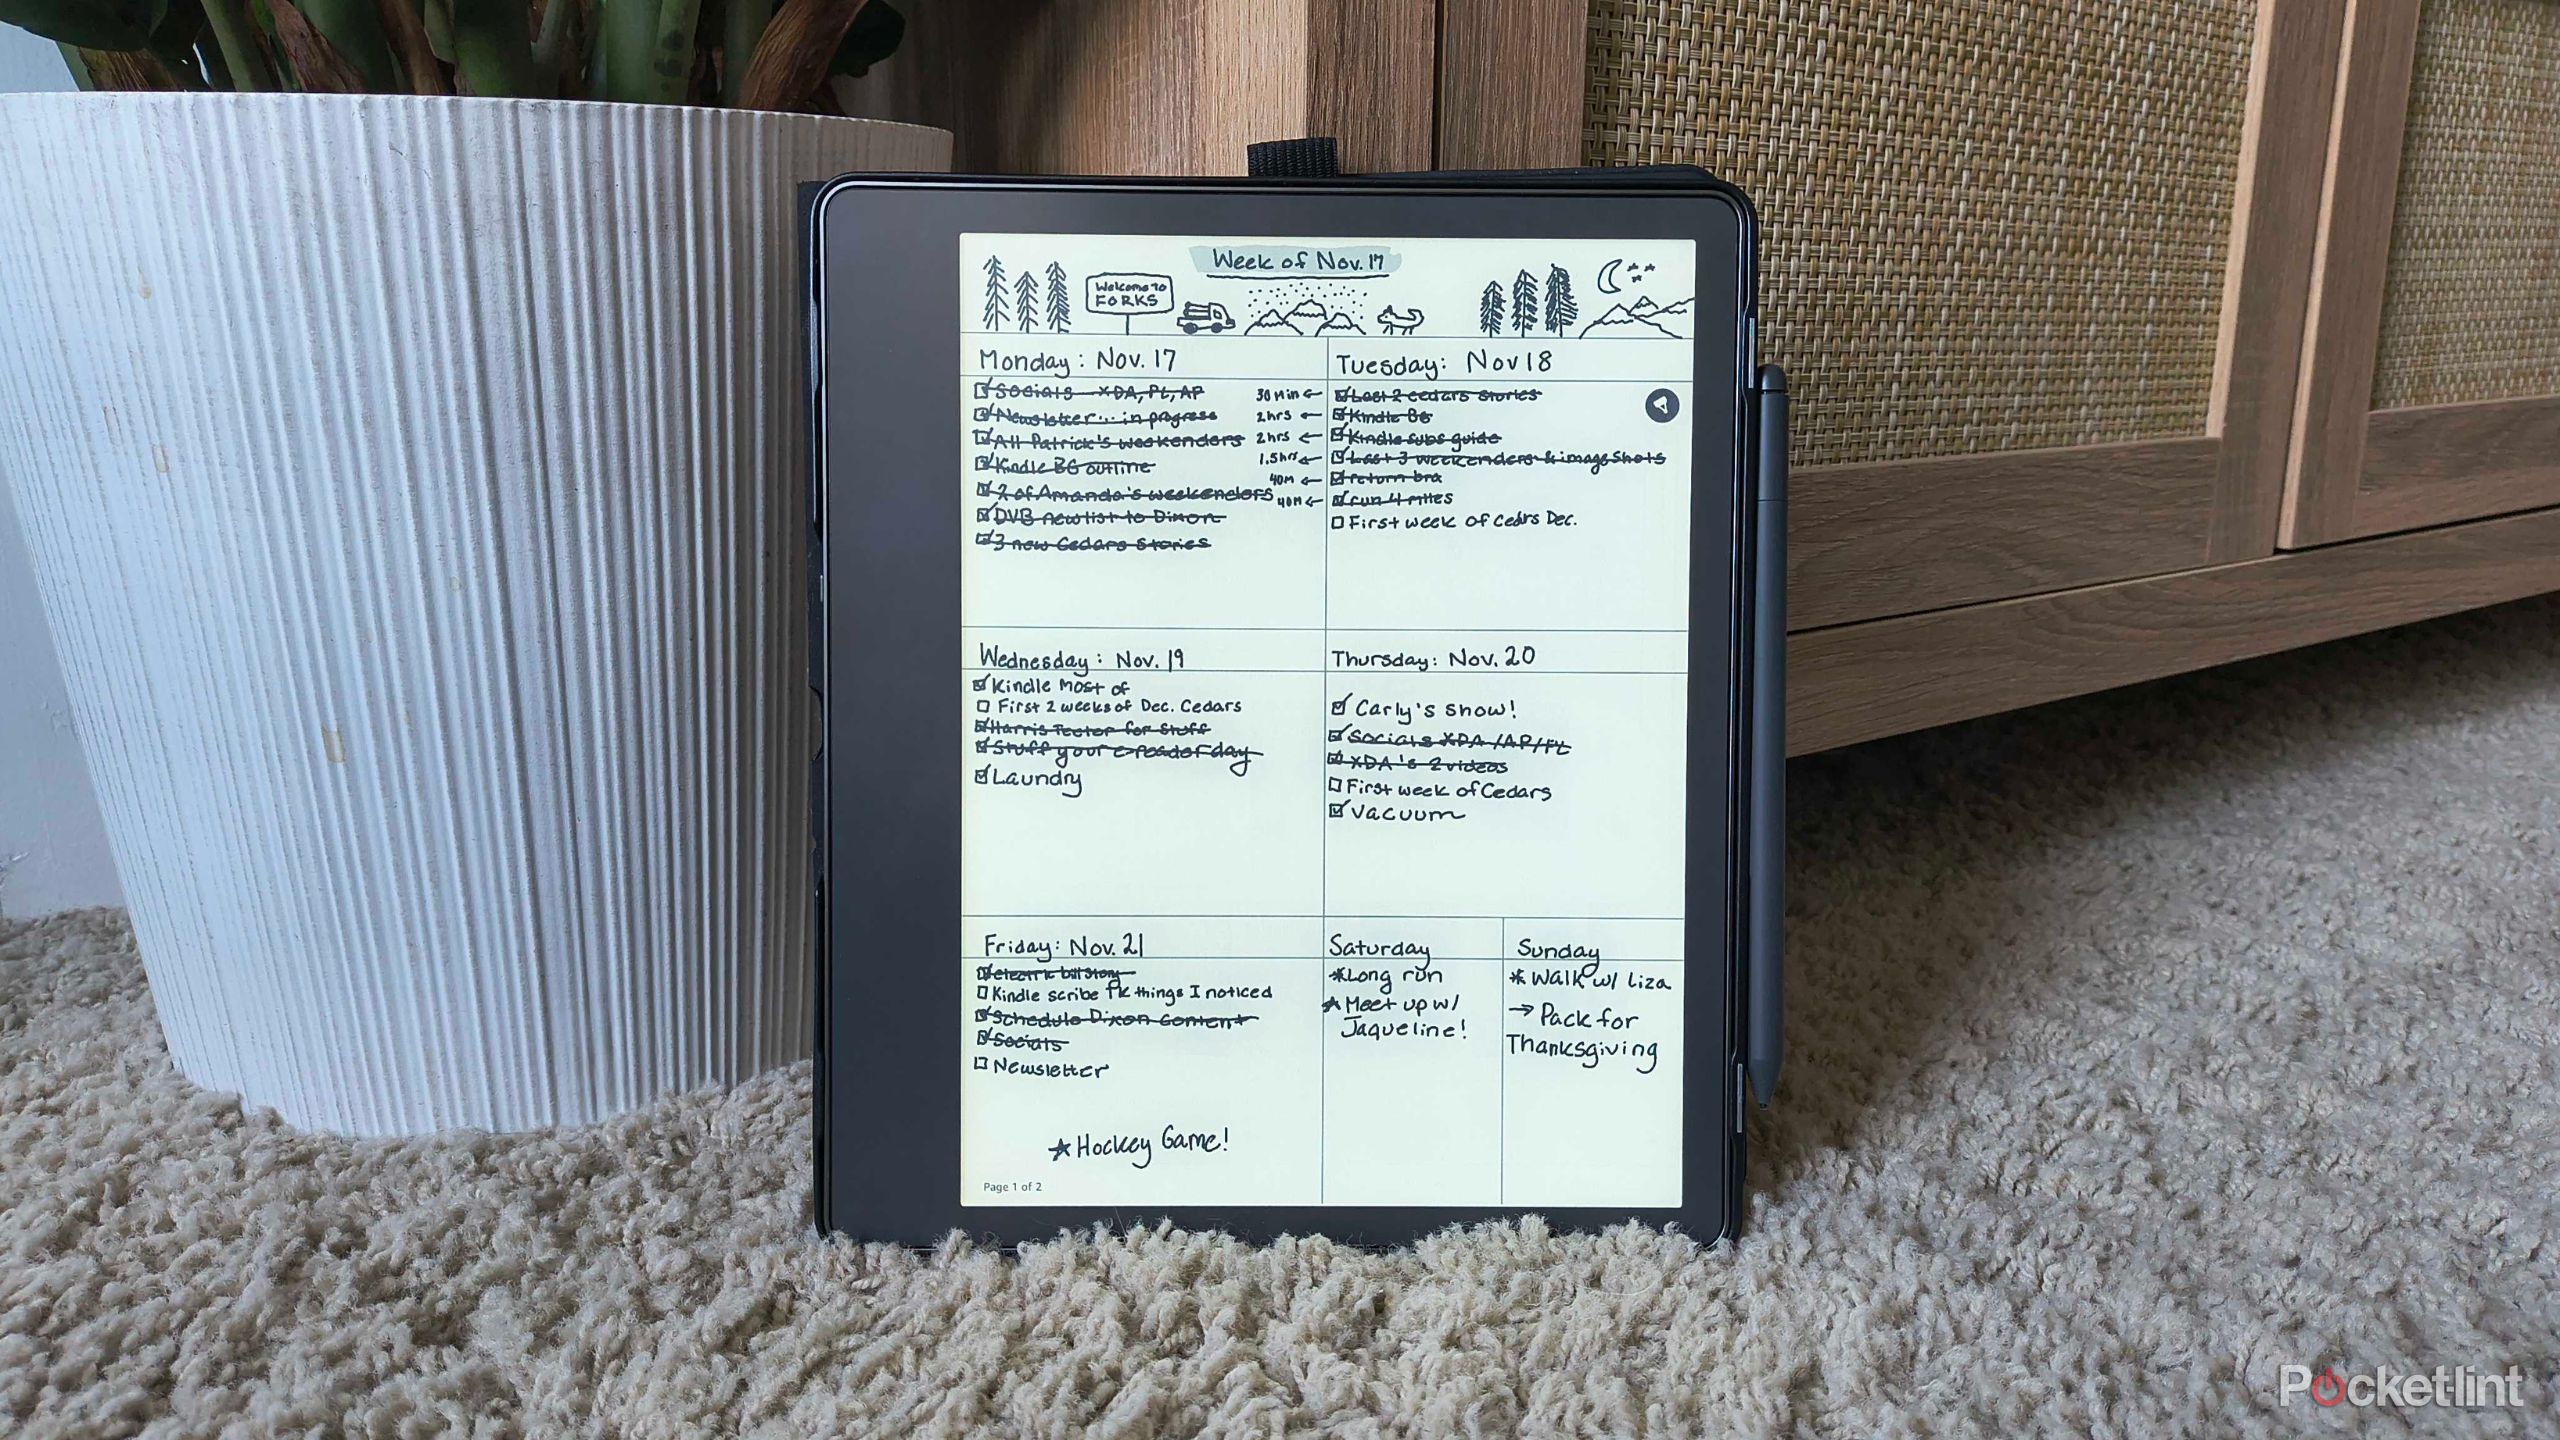 Week of Nov. 17
Welcome to
FORKS
Monday: Nov. 17
Socials - XDA, PL, AP
Newsletter... in progress
All Patrick's weekenders
Kindle BG outline
2 of Amanda's weekenders
DVB new list to Dixon
3 new Cedars Stories
Tuesday: Nov 18
30 min ← Last 2 cedars stories
2hrs ← Kindle BG
2hrs ← Kindle subs guide
1.5hrs ← Last 3 weekenders & image shots
40M ← return bra
40M ← run 4 miles
First week of cedars Dec.
Wednesday: Nov. 19
Kindle Most of
First 2 weeks of Dec. Cedars
Harris Teeter for Stuff
Stuff your e-reader day
Laundry
Thursday: Nov. 20
Carly's show!
Socials XDA/AP/PL
XDA's 2 videos
First week of Cedars
Vacuum
Friday: Nov. 21
electric bill story
Kindle scribe TK things I noticed
Schedule Dixon Content
Socials
Newsletter
★ Hockey Game!
Saturday
* Long run
★ Meet up w/
Jaqueline!
Sunday
* Walk w/ Liza
→ Pack for
Thanksgiving
Page 1 of 2
Pocket-lint